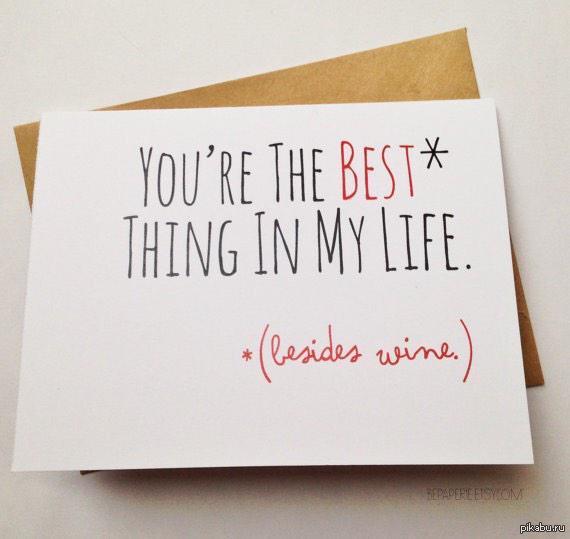 YOU'RE THE BEST*
THING IN MY LIFE.
*(besides wine.)
BEPAPERIE.ETSY.COM
pikabu.ru